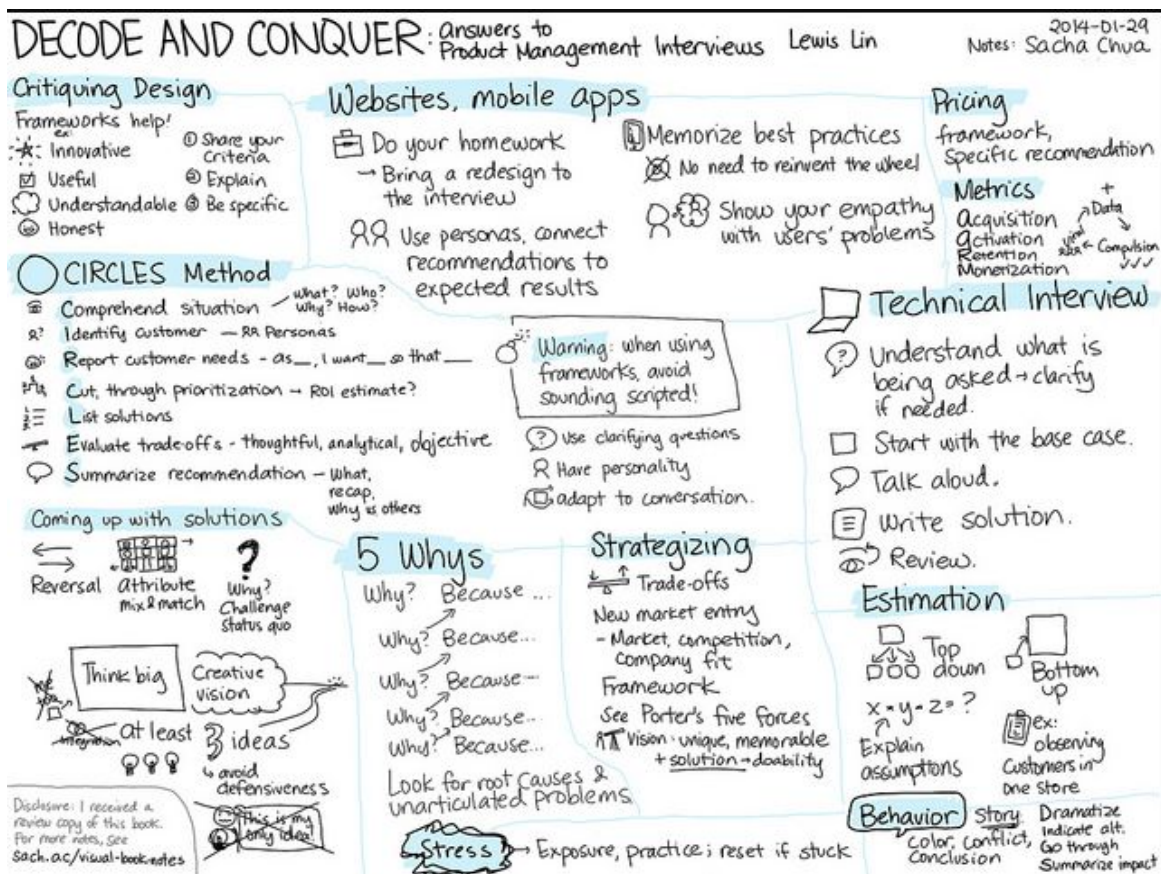 DECODE AND CONQUER: answers to
Product Management Interviews Lewis Lin
2014-01-29
Notes: Sacha Chua
Critiquing Design
Frameworks help!
ex:
Innovative
Useful
Understandable
Honest
① Share your
criteria
② Explain
③ Be specific
Websites, mobile apps
Do your homework
→ Bring a redesign to
the interview
Use personas, connect
recommendations to
expected results
Memorize best practices
No need to reinvent the wheel
Show your empathy
with users' problems
Pricing
framework,
specific recommendation
Metrics
acquisition
activation
Retention
Monetization
+
Data
Compulsion
Viral
CIRCLES Method
Comprehend situation
What? Who?
Why? How?
Identify customer — Personas
Report customer needs - as__, I want__ so that __
Cut, through prioritization → ROI estimate?
List solutions
Evaluate trade-offs - thoughtful, analytical, objective
Summarize recommendation — What,
recap,
Why vs others
Warning: when using
frameworks, avoid
sounding scripted!
Use clarifying questions
Have personality
adapt to conversation.
Technical Interview
Understand what is
being asked → clarify
if needed.
Start with the base case.
Talk aloud.
Write solution.
Review.
Coming up with solutions
Reversal
attribute
mix & match
?
Why?
Challenge
status quo
Think big
Creative
vision
me
too
integration
at least 3 ideas
↳ avoid
defensiveness
This is my
only idea!
Disclosure: I received a
review copy of this book.
For more notes, see
sach.ac/visual-book-notes
5 Whys
Why? Because ...
Why? Because...
Why? Because...
Why? Because...
Why? Because...
Look for root causes &
unarticulated problems
Strategizing
Trade-offs
New market entry
- Market, competition,
company fit
Framework
See Porter's five forces
Vision: unique, memorable
+ solution → doability
Estimation
Top
down
Bottom
up
x * y * z = ?
Explain
assumptions
ex:
observing
customers in
one store
Stress → Exposure, practice; reset if stuck
Behavior
Story
Color, conflict,
Conclusion
Dramatize
Indicate alt.
Go through
Summarize impact